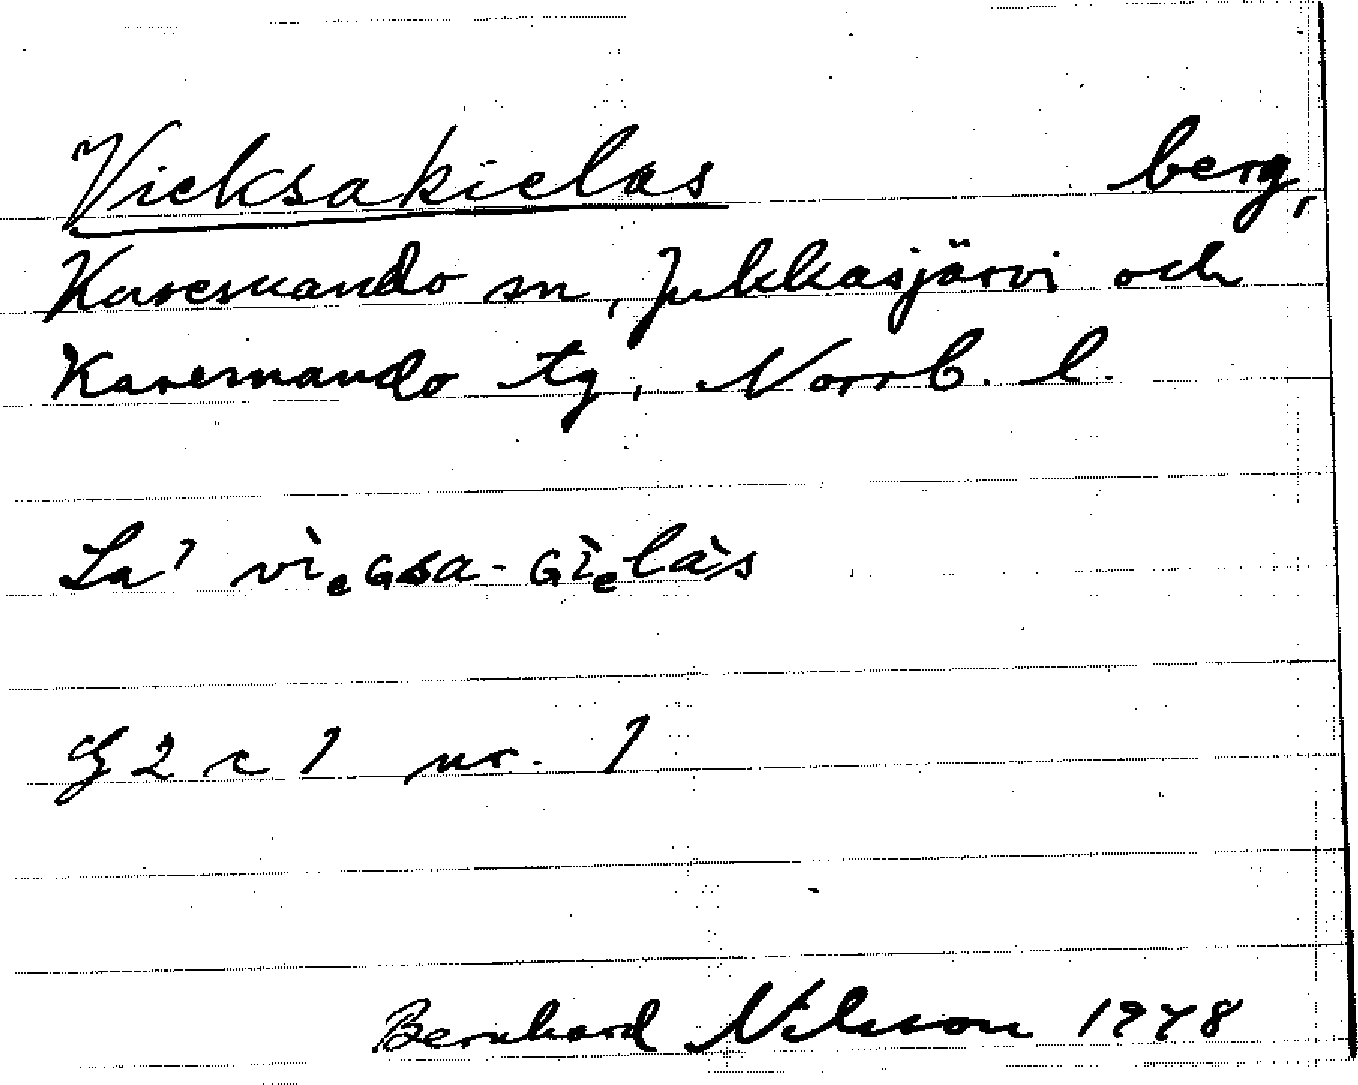 Vieksakielas berg,
Karesuando sn, Jukkasjärvi och
Karesuando tg, Norrb. l.
La' vìₑɢsa-ɢìₑlàs
G 2 c 1 nr. 1
Bernhard Nilsson 1948